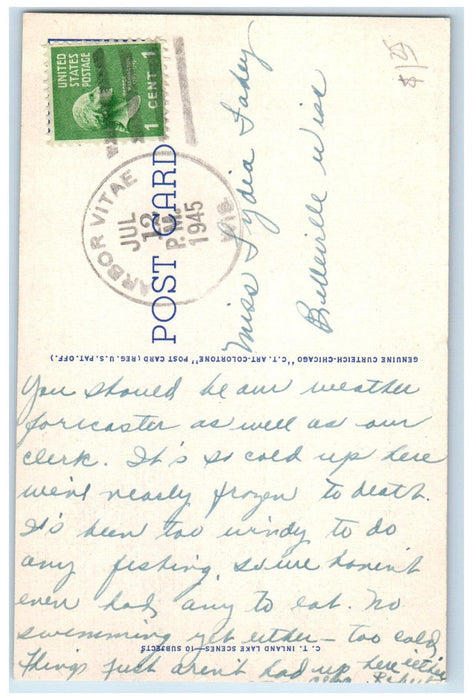 UNITED
STATES
POSTAGE
1 CENT 1
ARBOR VITAE
JUL
12
P.M.
1945
WIS.
POST CARD
$1.25
Miss Lydia
Belleville Wisc
GENUINE CURTEICH-CHICAGO "C.T. ART-COLORTONE" POST CARD (REG. U.S. PAT. OFF.)
You should be our weather
forcaster as well as our
clerk. It's so cold up here
we've nearly frozen to death.
It's been too windy to do
any fishing, so we haven't
even had any to eat. No
swimming yet either - too cold
Things just aren't had up here either
C. T. INLAND LAKE SCENES—10 SUBJECTS